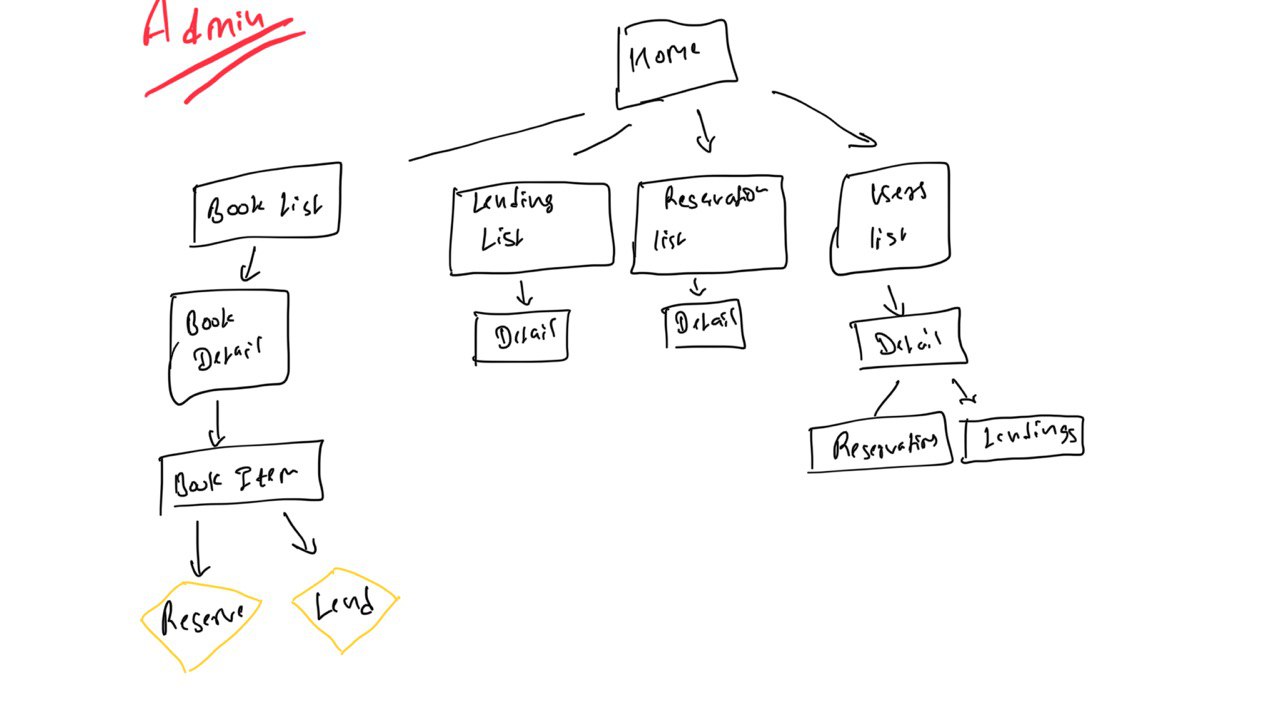 Admin
Home
Book List
Lending
List
Reservation
list
Users
list
Book
Detail
Detail
Detail
Detail
Book Item
Reservations
Lendings
Reserve
Lend